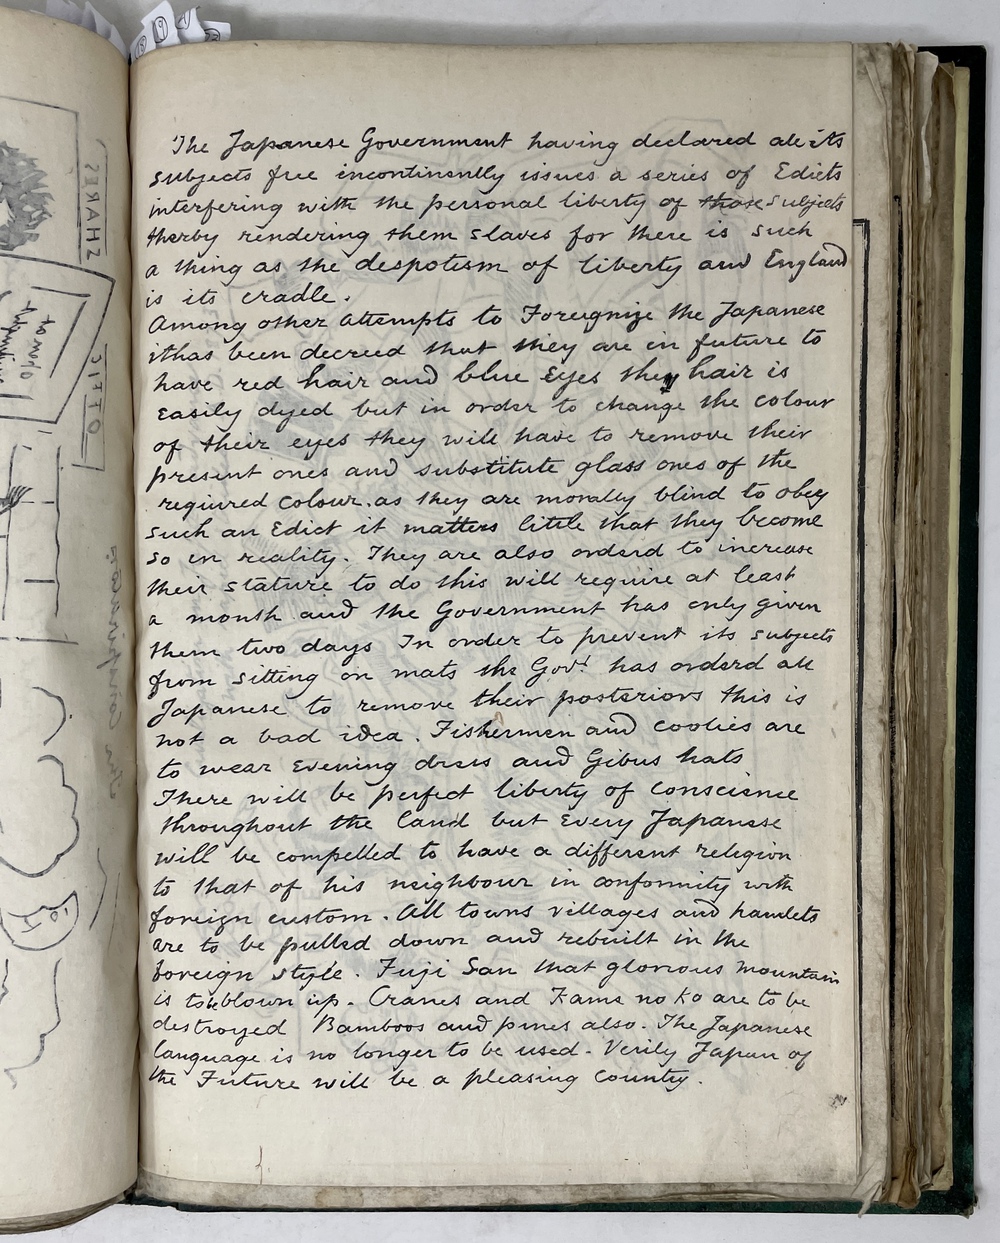 SHARES
DITTO
The Japanese Government having declared all its
subjects free incontinently issues a series of Edicts
interfering with the personal liberty of those subjects
therby rendering them slaves for there is such
a thing as the despotism of liberty and England
is its cradle.
Among other attempts to Foreignize the Japanese
ithas been decreed that they are in future to
have red hair and blue Eyes they hair is
Easily dyed but in order to change the colour
of their eyes they will have to remove their
present ones and substitute glass ones of the
required colour. as they are morally blind to obey
such an Edict it matters little that they become
so in reality. They are also orderd to increase
their stature to do this will require at least
a month and the Government has only given
them two days In order to prevent its subjects
from sitting on mats the Govt. has orderd all
Japanese to remove their posteriors this is
not a bad idea. Fishermen and coolies are
to wear Evening dress and Gibus hats
There will be perfect liberty of conscience
throughout the land but Every Japanese
will be compelled to have a different religion
to that of his neighbour in conformity with
foreign custom. All towns villages and hamlets
are to be pulled down and rebuilt in the
foreign style. Fuji San that glorious mountain
is to be blown up. Cranes and Kame no ko are to be
destroyed Bamboos and pines also. The Japanese
language is no longer to be used. Verily Japan of
the Future will be a pleasing country.